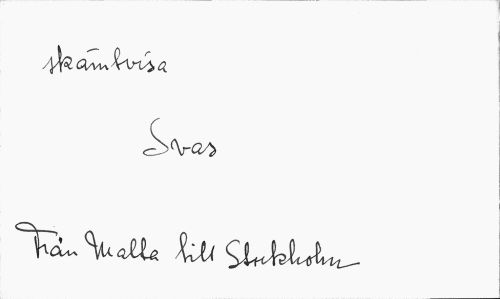 skämtvisa
Svas
Från Malta till Stockholm